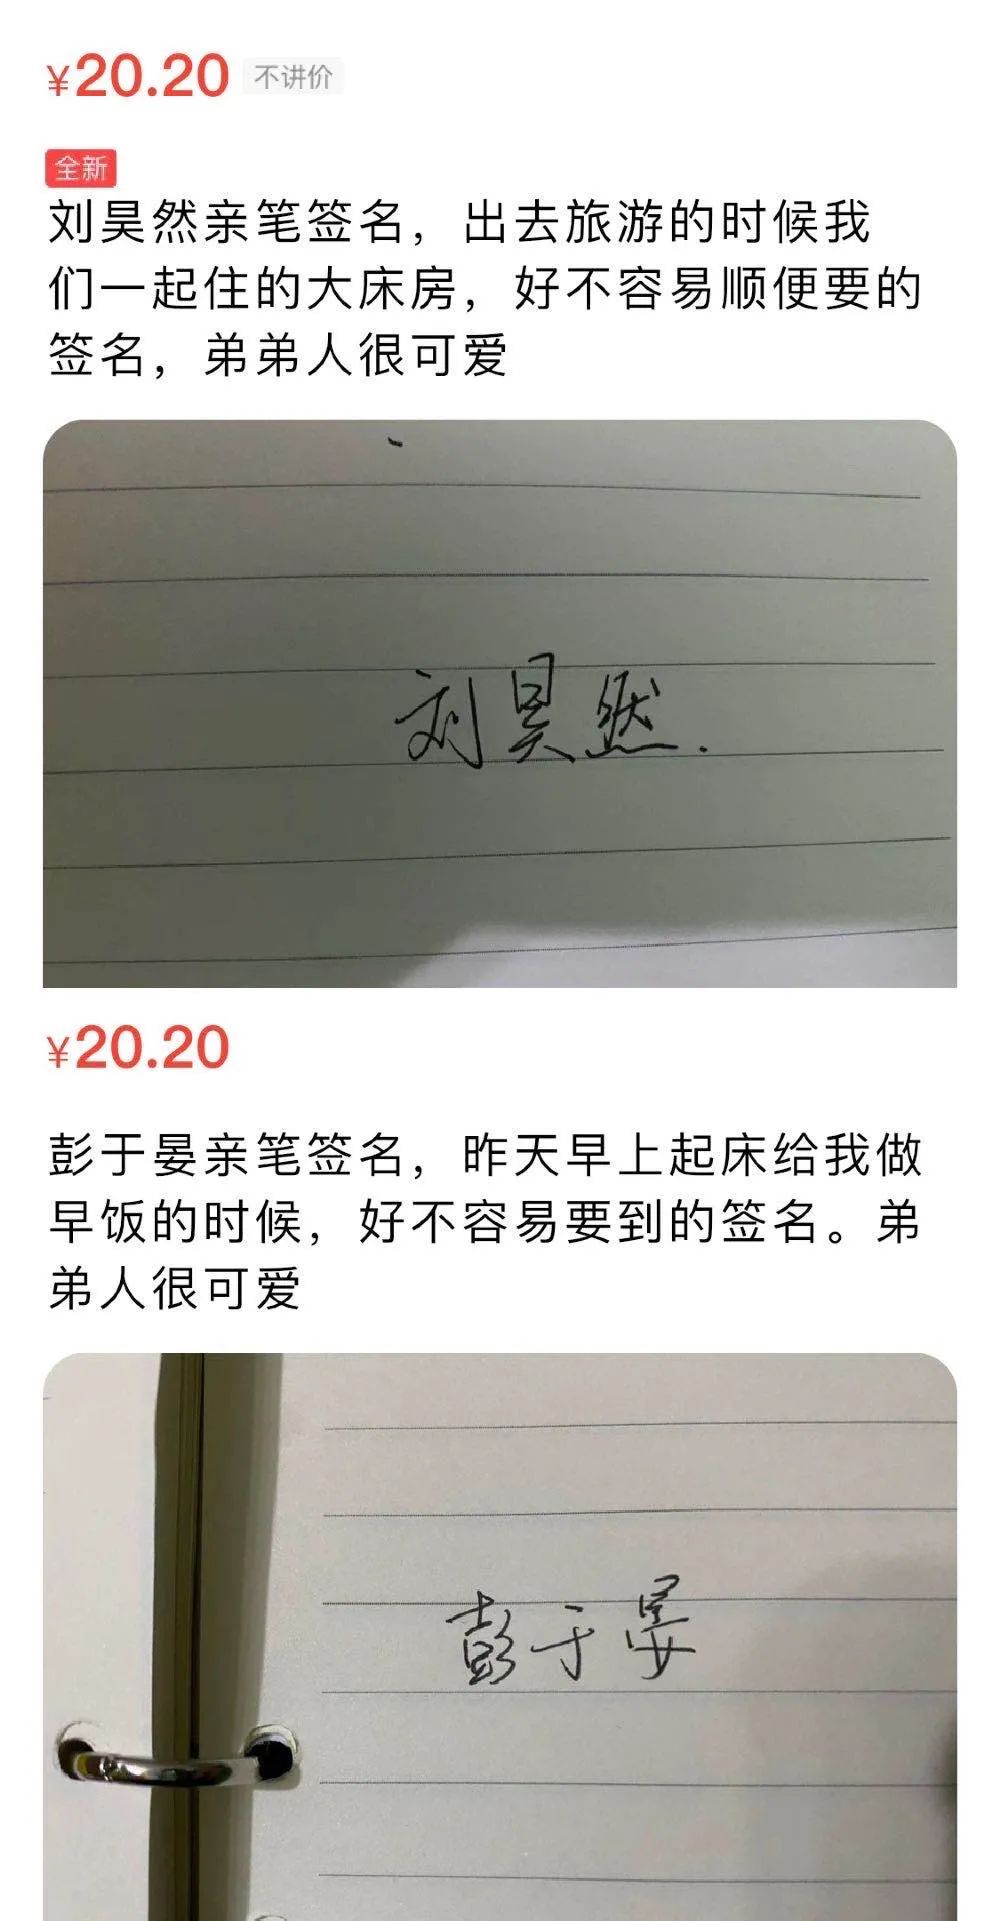 ¥20.20 不讲价
全新
刘昊然亲笔签名，出去旅游的时候我
们一起住的大床房，好不容易顺便要的
签名，弟弟人很可爱
刘昊然.
¥20.20
彭于晏亲笔签名，昨天早上起床给我做
早饭的时候，好不容易要到的签名。弟
弟人很可爱
彭于晏